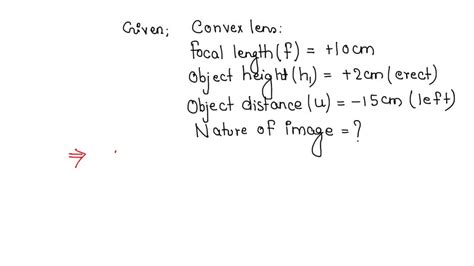 Given; Convex lens:
focal length (f) = +10cm
Object height (h₁) = +2cm (erect)
Object distance (u) = -15cm (left)
Nature of image = ?
⇒